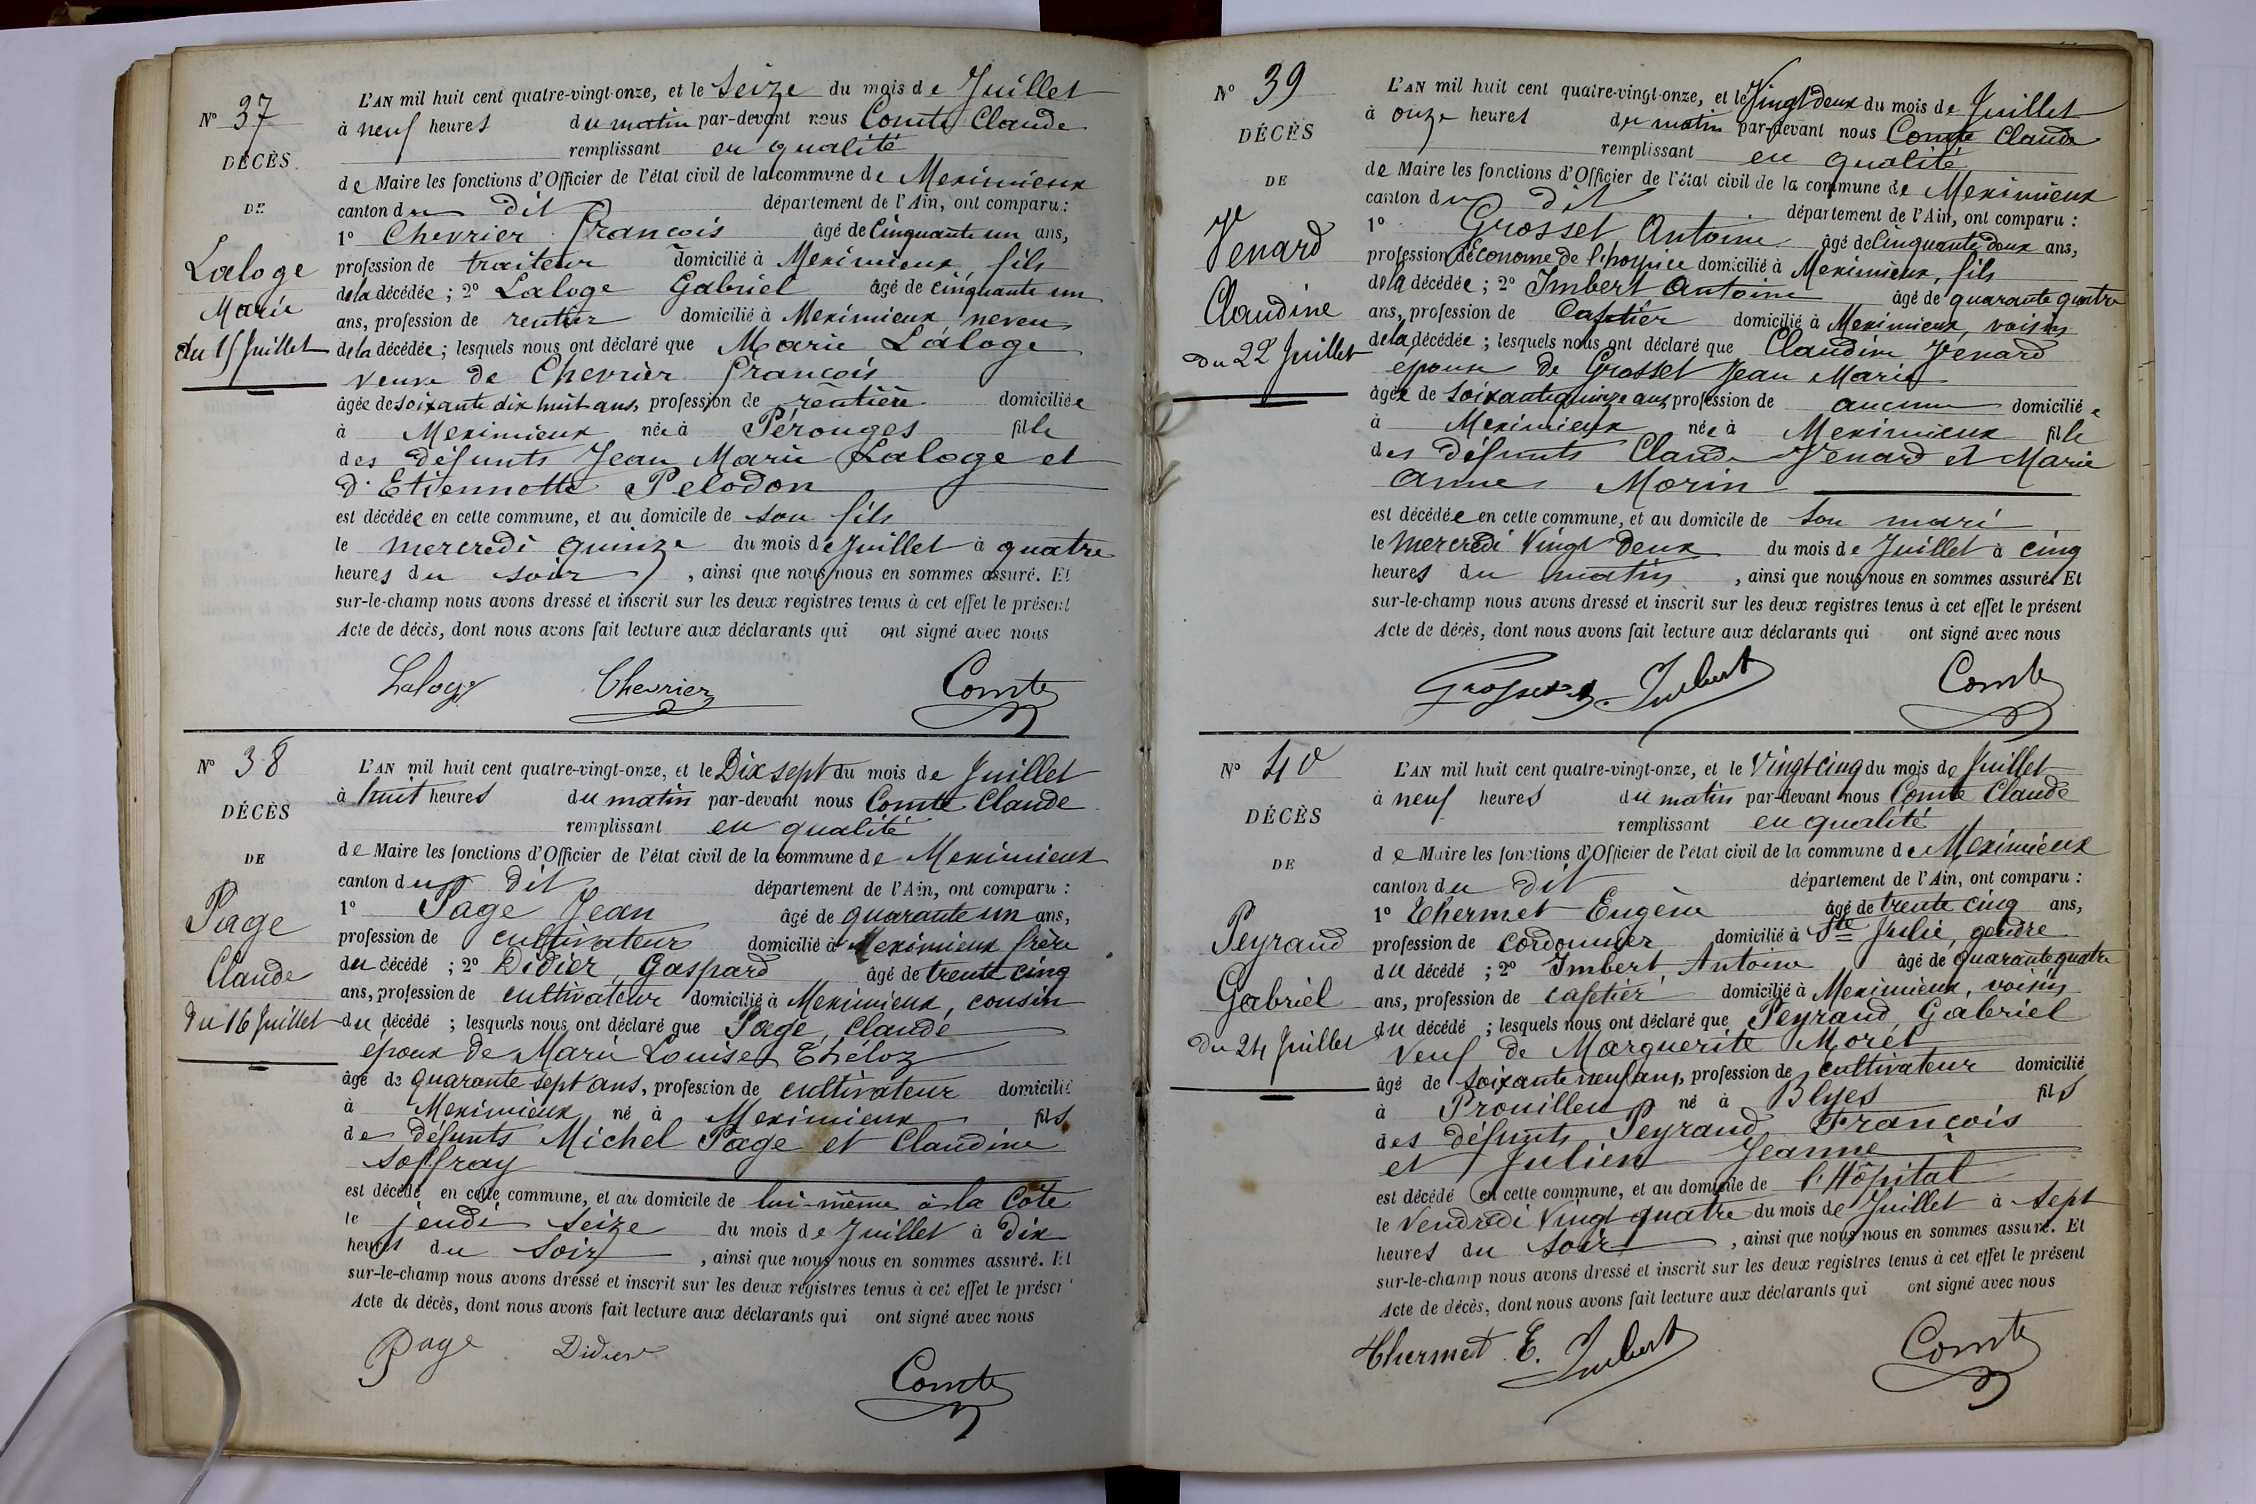 N° 37
DÉCÈS
DE
Laloge
Marie
du 15 Juillet
L'AN mil huit cent quatre-vingt-onze, et le seize du mois de Juillet
à neuf heures du matin par-devant nous Comte Claude
remplissant en qualité
de Maire les fonctions d'Officier de l'état civil de la commune de Meximieux
canton du dit département de l'Ain, ont comparu :
1° Chevrier François âgé de Cinquante un ans,
profession de traiteur domicilié à Meximieux, fils
de la décédée ; 2° Laloge Gabriel âgé de cinquante un
ans, profession de rentier domicilié à Meximieux, neveu
de la décédée ; lesquels nous ont déclaré que Marie Laloge
veuve de Chevrier François
âgée de soixante dix huit ans, profession de rentière domiciliée
à Meximieux née à Pérouges fille
des défunts Jean Marie Laloge et
d'Etiennette Pelodon
est décédée en cette commune, et au domicile de son fils
le mercredi quinze du mois de Juillet à quatre
heures du soir, ainsi que nous nous en sommes assuré. Et
sur-le-champ nous avons dressé et inscrit sur les deux registres tenus à cet effet le présent
Acte de décès, dont nous avons fait lecture aux déclarants qui ont signé avec nous
Laloge Chevrier Comte
N° 38
DÉCÈS
DE
Page
Claude
du 16 Juillet
L'AN mil huit cent quatre-vingt-onze, et le Dix sept du mois de Juillet
à huit heures du matin par-devant nous Comte Claude
remplissant en qualité
de Maire les fonctions d'Officier de l'état civil de la commune de Meximieux
canton du dit département de l'Ain, ont comparu :
1° Page Jean âgé de quarante un ans,
profession de cultivateur domicilié à Meximieux frère
du décédé ; 2° Didier, Gaspard âgé de trente cinq
ans, profession de cultivateur domicilié à Meximieux, cousin
du décédé ; lesquels nous ont déclaré que Page, Claude
époux de Marie Louise Théloz
âgé de quarante sept ans, profession de cultivateur domicilié
à Meximieux né à Meximieux fils
de défunts Michel Page et Claudine
Soffray
est décédé en cette commune, et au domicile de lui-même à la Côte
le jeudi seize du mois de Juillet à dix
heures du soir, ainsi que nous nous en sommes assuré. Et
sur-le-champ nous avons dressé et inscrit sur les deux registres tenus à cet effet le présent
Acte de décès, dont nous avons fait lecture aux déclarants qui ont signé avec nous
Page Didier
Comte
N° 39
DÉCÈS
DE
Venard
Claudine
Du 22 Juillet
L'AN mil huit cent quatre-vingt-onze, et le Vingt deux du mois de Juillet
à onze heures du matin par-devant nous Comte Claude
remplissant en qualité
de Maire les fonctions d'Officier de l'état civil de la commune de Meximieux
canton du dit département de l'Ain, ont comparu :
1° Grosset Antoine âgé de Cinquante deux ans,
profession d'économe de l'hospice domicilié à Meximieux, fils
de la décédée ; 2° Imbert Antoine âgé de quarante quatre
ans, profession de Cafetier domicilié à Meximieux, voisin
de la décédée ; lesquels nous ont déclaré que Claudine Venard
épouse de Grosset Jean Marie
âgée de soixante quinze ans, profession de aucune domiciliée
à Meximieux née à Meximieux fille
des défunts Claude Venard et Marie
Anne Morin
est décédée en cette commune, et au domicile de son mari
le mercredi Vingt Deux du mois de Juillet à cinq
heures du matin, ainsi que nous nous en sommes assuré. Et
sur-le-champ nous avons dressé et inscrit sur les deux registres tenus à cet effet le présent
Acte de décès, dont nous avons fait lecture aux déclarants qui ont signé avec nous
Grosset Imbert Comte
N° 40
DÉCÈS
DE
Peyraud
Gabriel
Du 24 Juillet
L'AN mil huit cent quatre-vingt-onze, et le Vingt cinq du mois de Juillet
à neuf heures du matin par-devant nous Comte Claude
remplissant en qualité
de Maire les fonctions d'Officier de l'état civil de la commune de Meximieux
canton du dit département de l'Ain, ont comparu :
1° Thermet Eugène âgé de trente cinq ans,
profession de cordonnier domicilié à Ste Julie, gendre
du décédé ; 2° Imbert Antoine âgé de quarante quatre
ans, profession de cafetier domicilié à Meximieux, voisin
du décédé ; lesquels nous ont déclaré que Peyraud, Gabriel
Veuf de Marguerite Morel
âgé de soixante neuf ans, profession de cultivateur domicilié
à Prouilleu né à Blyes fils
des défunts Peyraud François
et Julien Jeanne
est décédé en cette commune, et au domicile de l'Hôpital
le Vendredi Vingt quatre du mois de Juillet à sept
heures du soir, ainsi que nous nous en sommes assuré. Et
sur-le-champ nous avons dressé et inscrit sur les deux registres tenus à cet effet le présent
Acte de décès, dont nous avons fait lecture aux déclarants qui ont signé avec nous
Thermet E. Imbert Comte